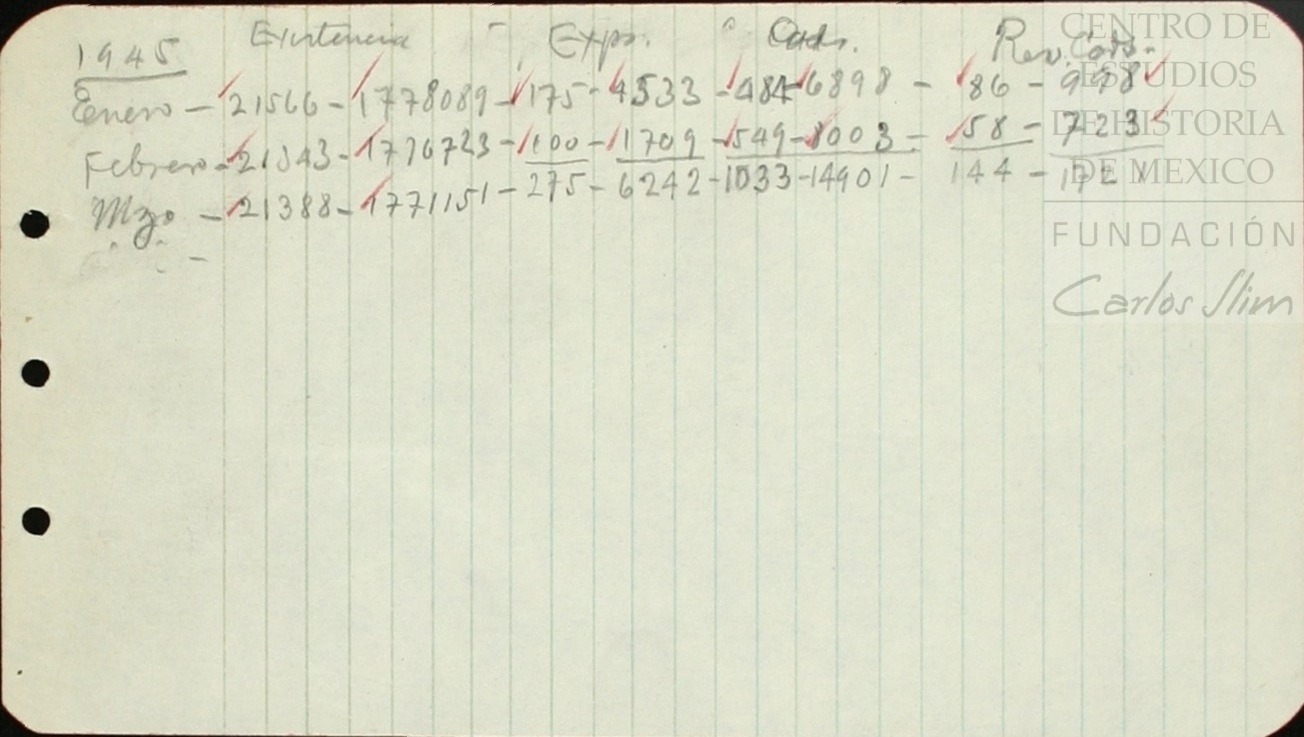 1945 Existencia - Exps. Cads. Rev. Cads.
Enero - 21566 - 1778089 - 175 - 4533 - 484 - 6898 - 86 - 998
Febrero - 21343 - 1776723 - 100 - 1709 - 549 - 8003 - 58 - 723
Mzo - 21388 - 1771151 - 275 - 6242 - 1033 - 14901 - 144 - 1721
CENTRO DE
ESTUDIOS
DE HISTORIA
DE MEXICO
FUNDACIÓN
Carlos Slim